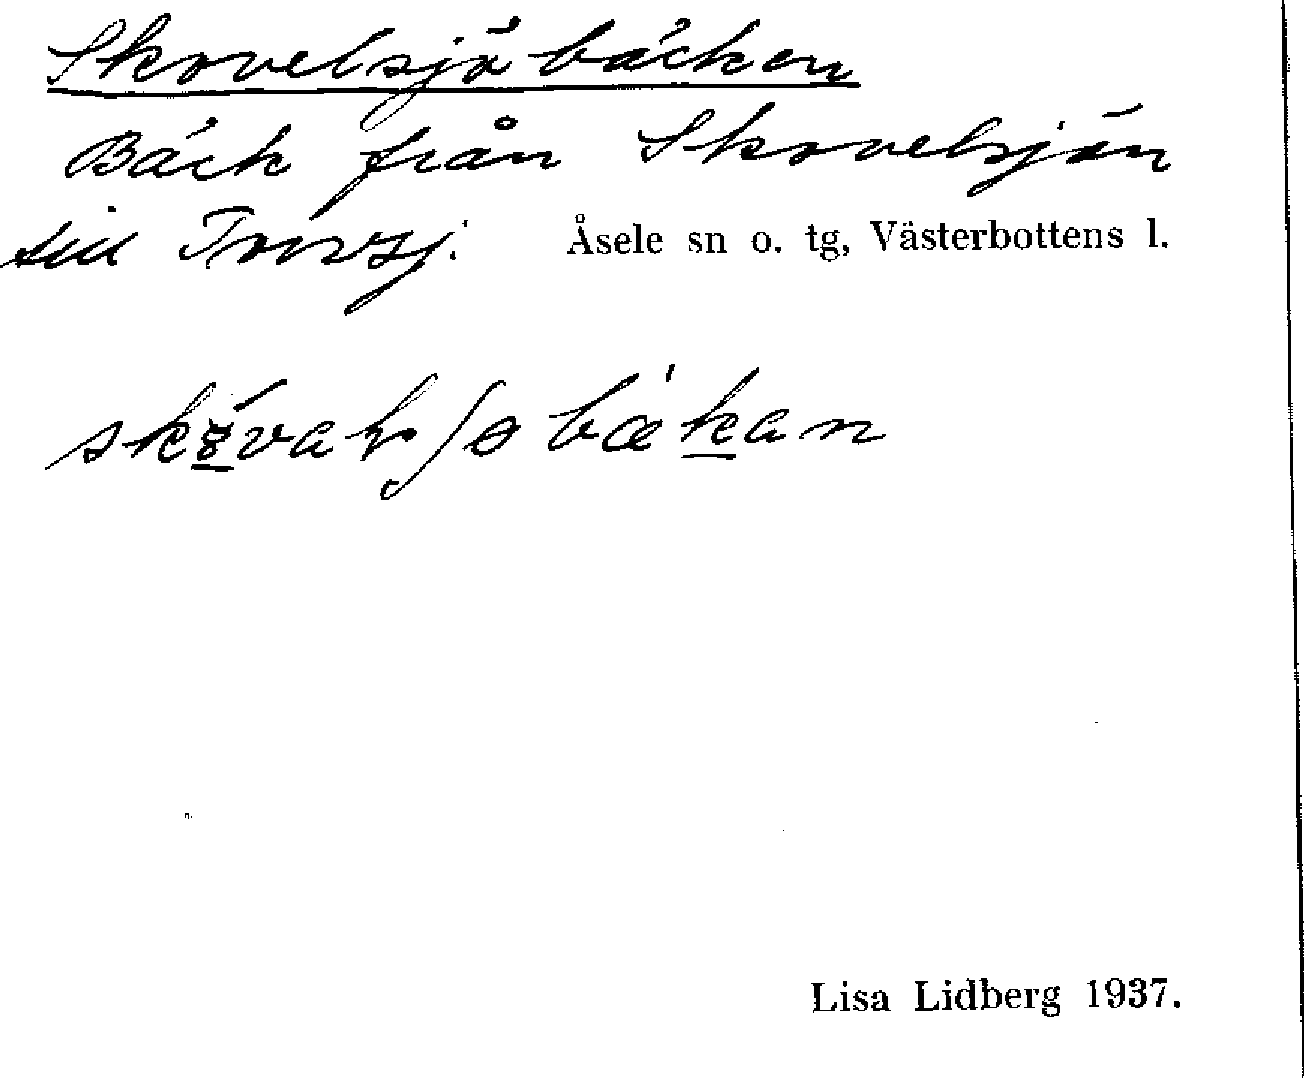 Skovelsjöbäcken
Bäck från Skovelsjön
till Åsele sn o. tg, Västerbottens l.
Lisa Lidberg 1937.